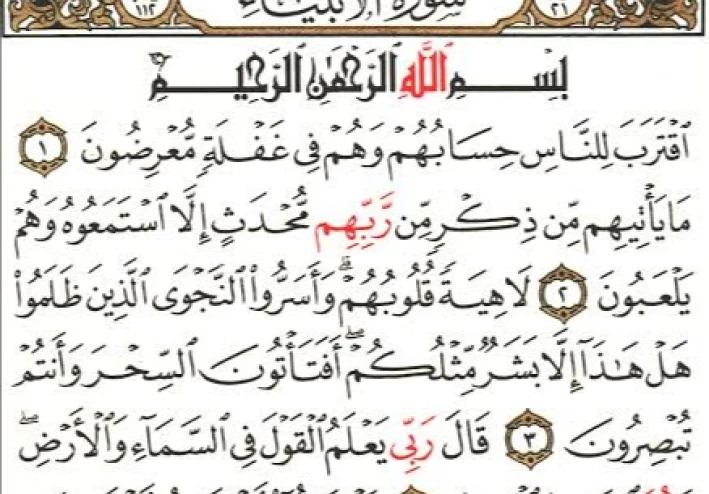 سورة الأنبياء
٢١
١١٢
بِسْمِ ٱللَّهِ ٱلرَّحْمَٰنِ ٱلرَّحِيمِ
ٱقْتَرَبَ لِلنَّاسِ حِسَابُهُمْ وَهُمْ فِى غَفْلَةٍ مُّعْرِضُونَ ١
مَا يَأْتِيهِم مِّن ذِكْرٍ مِّن رَّبِّهِم مُّحْدَثٍ إِلَّا ٱسْتَمَعُوهُ وَهُمْ
يَلْعَبُونَ ٢ لَاهِيَةً قُلُوبُهُمْ ۗ وَأَسَرُّوا۟ ٱلنَّجْوَى ٱلَّذِينَ ظَلَمُوا۟
هَلْ هَٰذَآ إِلَّا بَشَرٌ مِّثْلُكُمْ ۖ أَفَتَأْتُونَ ٱلسِّحْرَ وَأَنتُمْ
تُبْصِرُونَ ٣ قَالَ رَبِّى يَعْلَمُ ٱلْقَوْلَ فِى ٱلسَّمَآءِ وَٱلْأَرْضِ ۖ